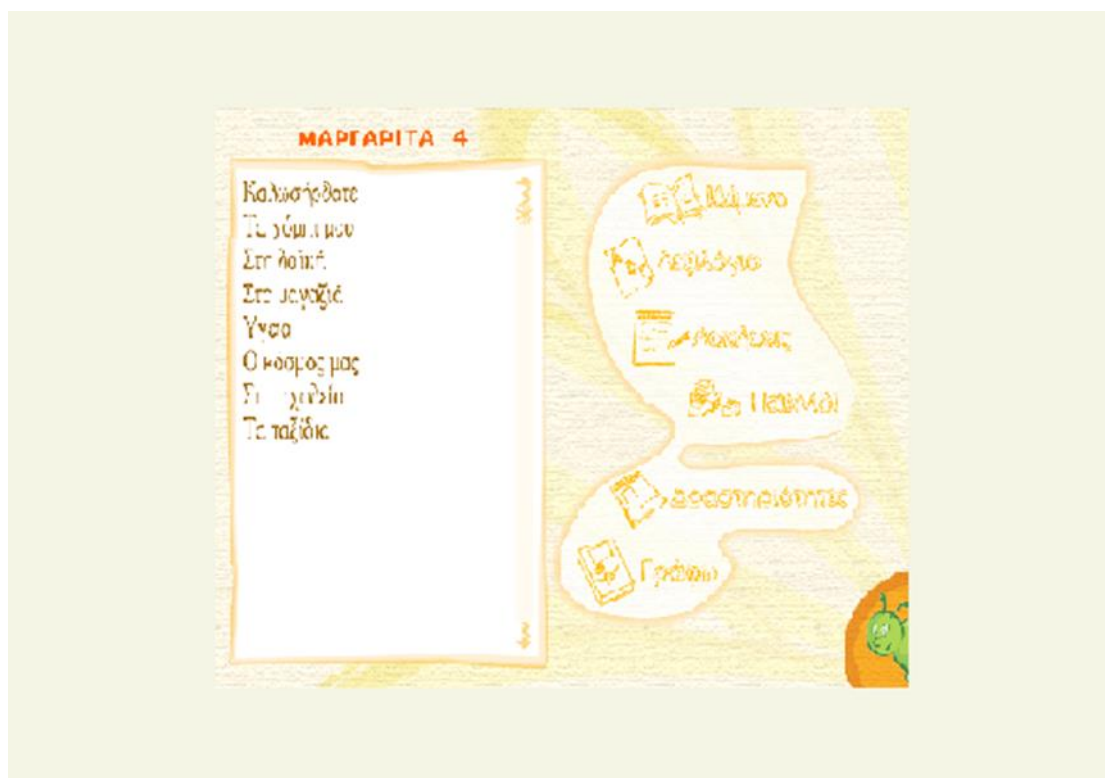 ΜΑΡΓΑΡΙΤΑ 4
Καλωσήρθατε
μου
Στη
Στα μαγαζιά
Υγεία
Ο κόσμος μας
Τα ταξίδια
Κείμενο
Λεξιλόγιο
Ασκήσεις
Παιχνίδι
Δραστηριότητες
Γράφω